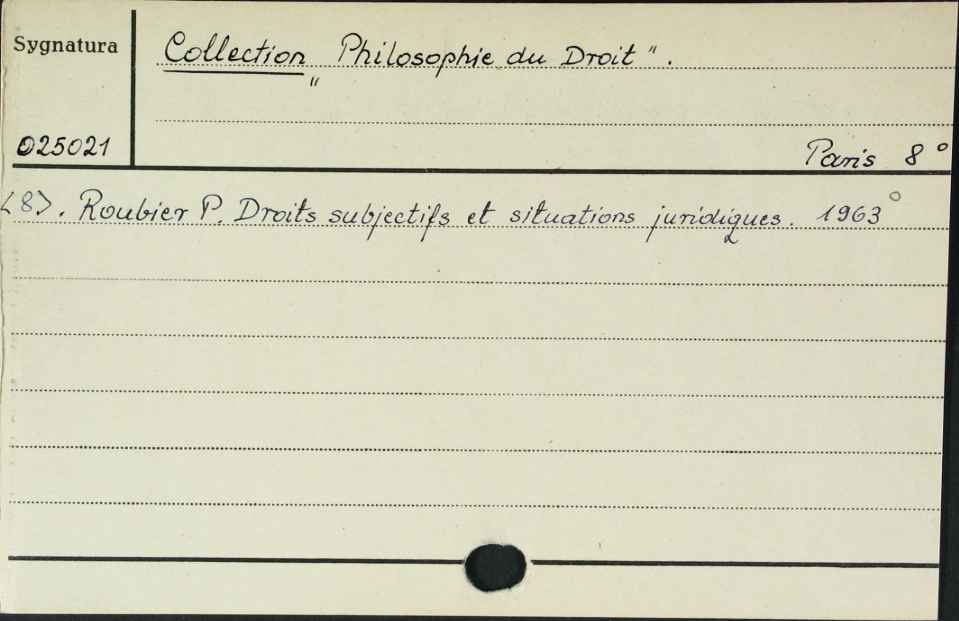 Sygnatura
Collection „Philosophie du Droit".
025021
Paris 8°
<8>. Roubier P. Droits subjectifs et situations juridiques. 1963°